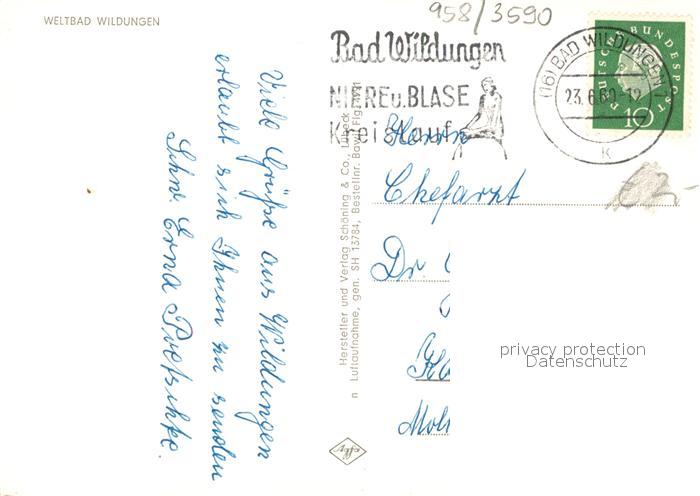 WELTBAD WILDUNGEN
958/3590
Bad Wildungen
NIERE u. BLASE
Kreislauf
(16) BAD WILDUNGEN 1
23.6.60-12
k
DEUTSCHE BUNDESPOST
10
Viele Grüße aus Wildungen
erlaubt sich Ihnen zu senden
Schw. Erna
Hersteller und Verlag Schöning & Co., Lübeck
n Luftaufnahme, gen. SH 13784, Bestellnr. Bawil Flg.
Herrn
Chefarzt
Dr.
privacy protection
Datenschutz